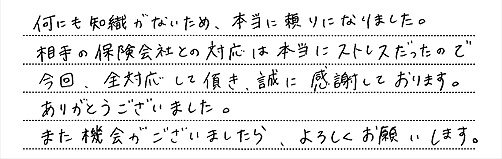 何にも知識がないため、本当に頼りになりました。
相手の保険会社との対応は本当にストレスだったので
今回、全対応して頂き、誠に感謝しております。
ありがとうございました。
また機会がございましたら、よろしくお願いします。